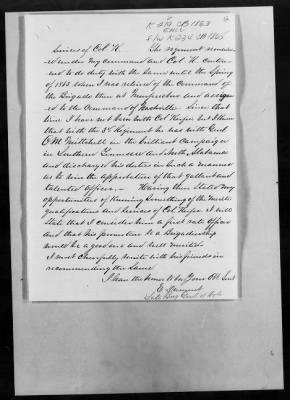 K 419 CB 1863
ENCL.
S/W K 234 CB 1865
services of Col. K. The regiment remained
under my command and Col. K. continued
to do duty with the same until the Spring
of 1863 when I was relieved of the Command of
the Brigade then at Murfreesboro and assigned
to the Command of Nashville. Since that
time I have not been with Col. Keifer but I know
that with the 3rd Regiment he was with Genl
O. M. Mitchell in the brilliant Campaign
in Southern Tennessee and North Alabama
and discharged his duties in such a manner
as to win the approbation of that gallant and
talented officer. Having thus stated my
opportunities of knowing something of the military
qualifications and services of Col. Keifer I will
state that I consider him a first rate officer
and that his promotion to a Brigadiership
would be a good one and well merited.
I most cheerfully unite with his friends in
recommending the same.
I have the honor to be Your Obt Servt
E.
Late Brig Genl of Vols